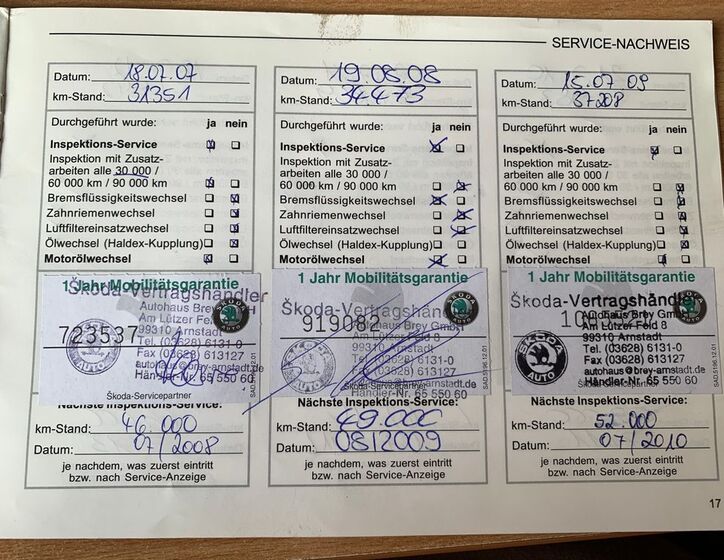 SERVICE-NACHWEIS
Datum: 18.07.07
km-Stand: 31351
Durchgeführt wurde: ja nein
Inspektions-Service
Inspektion mit Zusatz-
arbeiten alle 30 000 /
60 000 km / 90 000 km
Bremsflüssigkeitswechsel
Zahnriemenwechsel
Luftfiltereinsatzwechsel
Ölwechsel (Haldex-Kupplung)
Motorölwechsel
1 Jahr Mobilitätsgarantie
Škoda-Vertragshändler
Autohaus Brey
Am Lützer Feld
723537
99310 Arnstadt
Tel. (03628) 6131-0
Fax (03628) 613127
autohaus@brey-arnstadt.de
Händler-Nr. 65 550 60
Škoda-Servicepartner
SAD.5196.12.01
Nächste Inspektions-Service:
km-Stand: 46.000
Datum: 07/2008
je nachdem, was zuerst eintritt
bzw. nach Service-Anzeige
Datum: 19.08.08
km-Stand: 34473
Durchgeführt wurde: ja nein
Inspektions-Service
Inspektion mit Zusatz-
arbeiten alle 30 000 /
60 000 km / 90 000 km
Bremsflüssigkeitswechsel
Zahnriemenwechsel
Luftfiltereinsatzwechsel
Ölwechsel (Haldex-Kupplung)
Motorölwechsel
1 Jahr Mobilitätsgarantie
Škoda-Vertragshändler
919082
Autohaus Brey GmbH
Am Lützer Feld 8
99310 Arnstadt
Tel. (03628) 6131-0
Fax (03628) 613127
autohaus@brey-arnstadt.de
Händler-Nr. 65 550 60
Škoda-Servicepartner
SAD.5196.12.01
Nächste Inspektions-Service:
km-Stand: 49.000
Datum: 08/2009
je nachdem, was zuerst eintritt
bzw. nach Service-Anzeige
Datum: 15.07 09
km-Stand: 37208
Durchgeführt wurde: ja nein
Inspektions-Service
Inspektion mit Zusatz-
arbeiten alle 30 000 /
60 000 km / 90 000 km
Bremsflüssigkeitswechsel
Zahnriemenwechsel
Luftfiltereinsatzwechsel
Ölwechsel (Haldex-Kupplung)
Motorölwechsel
1 Jahr Mobilitätsgarantie
Škoda-Vertragshändler
Autohaus Brey GmbH
Am Lützer Feld 8
99310 Arnstadt
Tel. (03628) 6131-0
Fax (03628) 613127
autohaus@brey-arnstadt.de
Händler-Nr. 65 550 60
ŠKODA
AUTO
SAD.5196.12.01
Nächste Inspektions-Service:
km-Stand: 52.000
Datum: 07/2010
je nachdem, was zuerst eintritt
bzw. nach Service-Anzeige
17